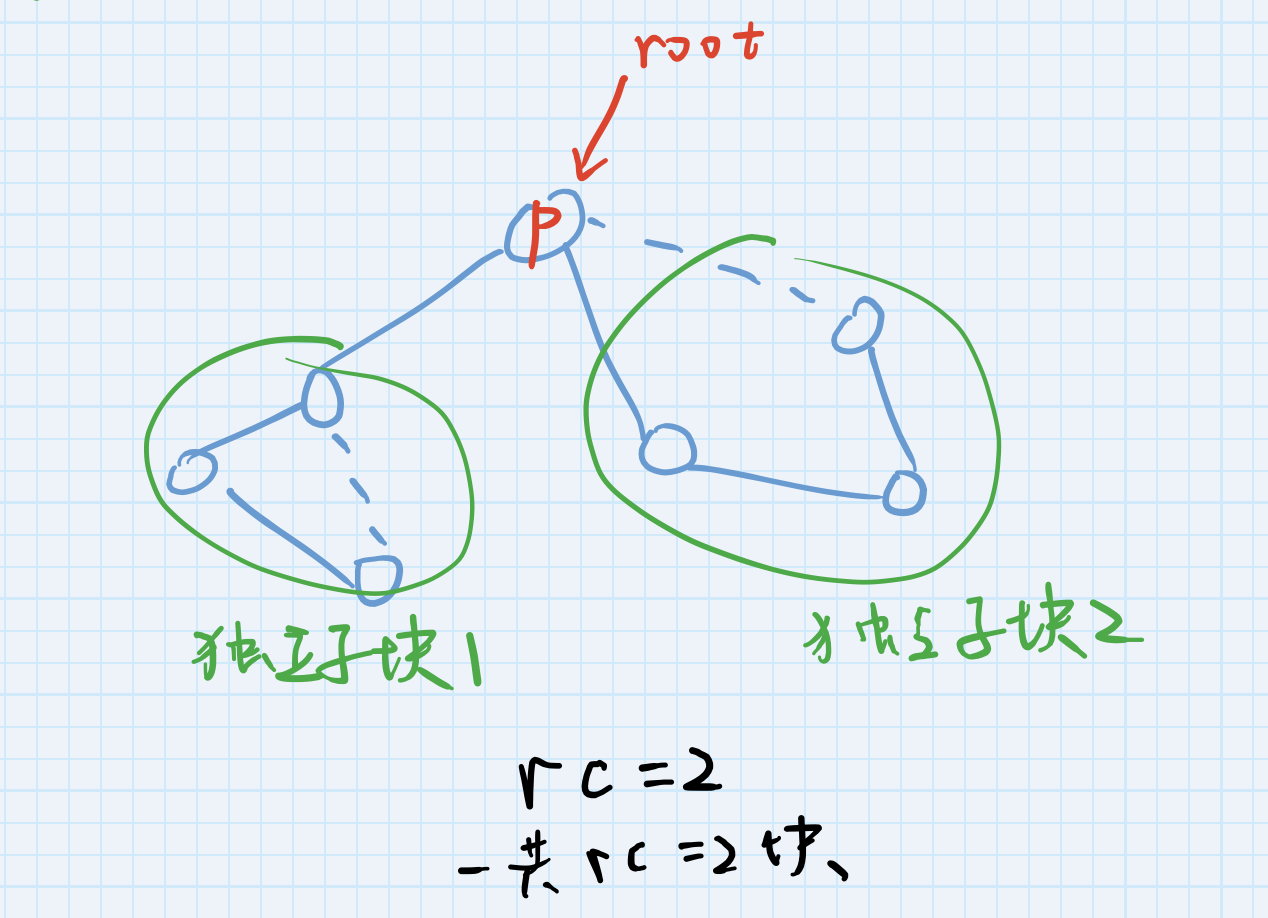 root
P
独立子块1
独立子块2
rc=2
一共rc=2块、